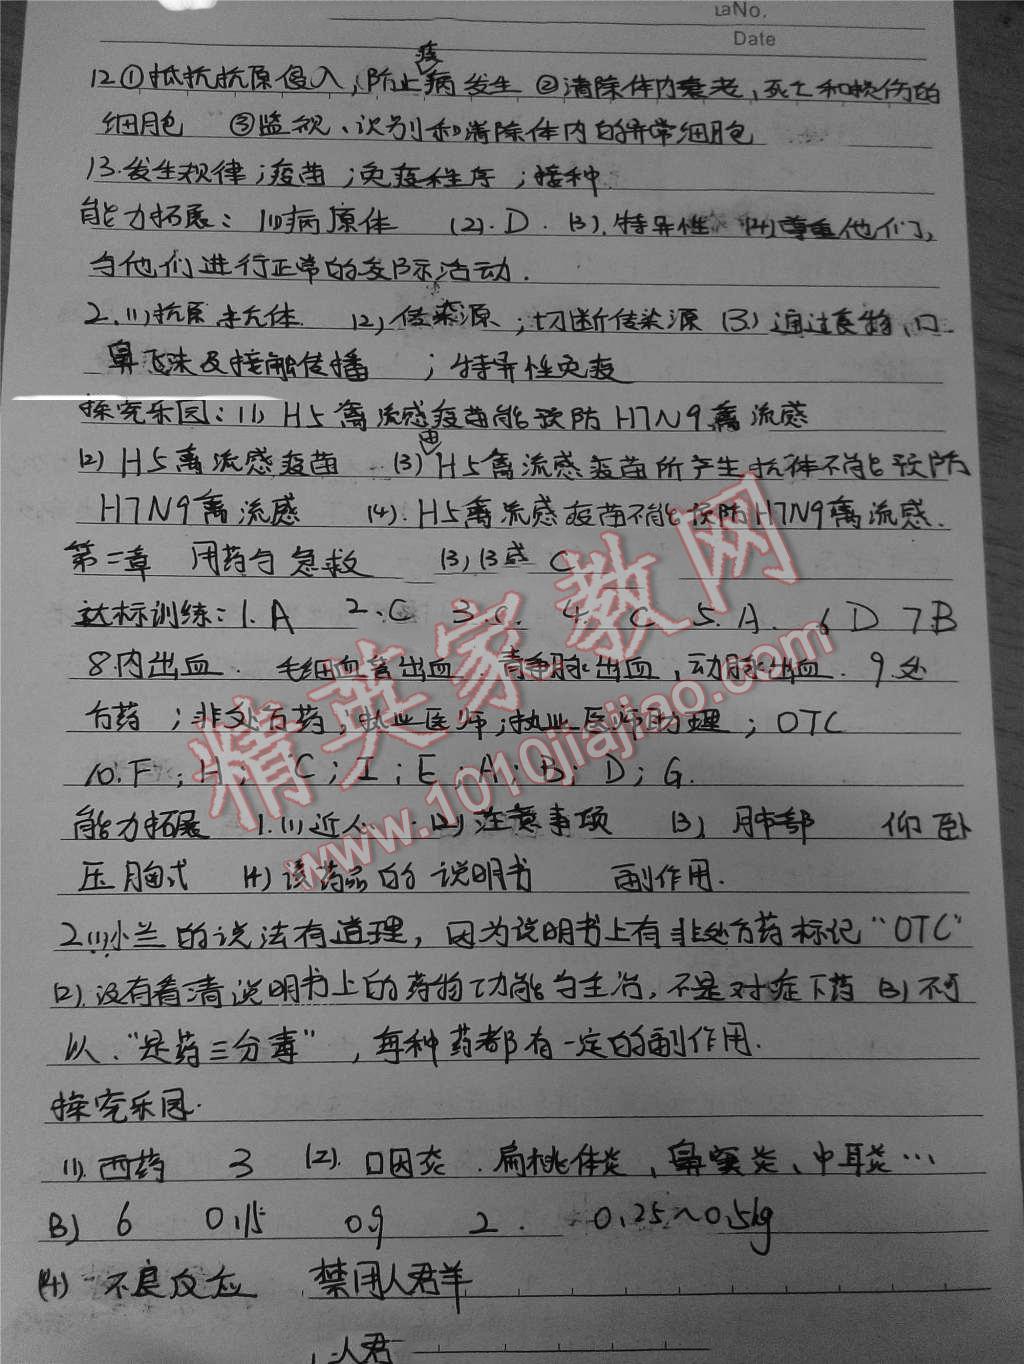 No.
Date
12①抵抗抗原侵入;防止疾病发生 ②清除体内衰老、死亡和损伤的
细胞 ③监视、识别和清除体内的异常细胞
13.发生规律;疫苗;免疫程序;接种
能力拓展:1(1)病原体 (2).D.(3).特异性 (4)尊重他们,
与他们进行正常的交际活动.
2.(1)抗原 抗体 (2)传染源;切断传染源(3)通过食物、口
鼻飞沫及接触传播 ;特异性免疫
探究乐园:(1)H5禽流感疫苗能预防H7N9禽流感
(2)H5禽流感疫苗 (3)由H5禽流感疫苗所产生抗体不能预防
H7N9禽流感 (4).H5禽流感疫苗不能预防H7N9禽流感.
第二章 用药与急救 C
达标训练:1.A 2.C 3.C. 4.C 5.A. 6D 7B
8内出血. 毛细血管出血.静脉出血,动脉出血. 9.处
方药;非处方药;执业医师;执业医师助理;OTC
10.F;H;C;I;E;A;B;D;G.
能力拓展 1.(1)近人 (2)注意事项 (3)肺部 仰卧
压胸式 (4)该药品的说明书 副作用.
2(1)小兰的说法有道理,因为说明书上有非处方药标记“OTC”
(2).没有看清说明书上的药物功能与主治,不是对症下药 (3)不可
以.“是药三分毒”,每种药都有一定的副作用.
探究乐园.
(1).西药 3 (2).口因炎.扁桃体炎、鼻窦炎、中耳炎…
(3) 6 0.15 0.9 2. 0.25~0.5kg
(4) 不良反应 禁用人君羊
人君
精英家教网
www.1010jiajiao.com